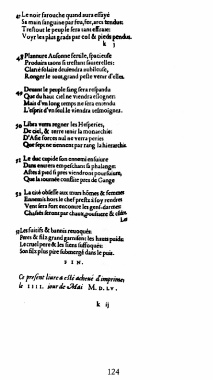 47 Le noir farouche quand aura essayé
Sa main sanguine par feu, fer, arcs tendus:
Trestout le peuple sera tant effraie:
Voyr les plus grãds par col & pieds pendus.
k j
48 Planure Ausonne fertile, spacieuse
Produira taons si trestant sauterelles:
Clarté solaire deuiendra nubileuse,
Ronger le tout, grand peste venir d'elles.
49 Deuant le peuple sang sera respandu
Que du haut ciel ne viendra eslogner:
Mais d'vn long temps ne sera entendu
L'esprit d'vn seul le viendra tesmoigner.
50 Libra verra regner les Hesperies,
De ciel, & terre tenir la monarchie:
D'Asie forces nul ne verra peries
Que sept ne tiennent par rang la hierarchie.
51 Le duc cupide son ennemi ensuiure
Dans entrera empeschant la phalange:
Astes à pied si pres viendront poursuiure,
Que la iournee conflite pres de Gange
52 La cité obsesse aux murs hõmes & femmes
Ennemis hors le chef prestz à soy rendre
Vent sera fort encontre les gens-darmes:
Chassés seront par chaux, poussiere & cẽdre.
Les
53 Les fuitifs & bannis reuoqués:
Peres & filz grand garnisent les hauts puids:
Le cruel pere & les siens suffoqués:
Son filz plus pire submergé dans le puis.
FIN.
Ce present liure a esté acheué d'imprimer
le IIII. iour de May M.D.LV.
k ij
124